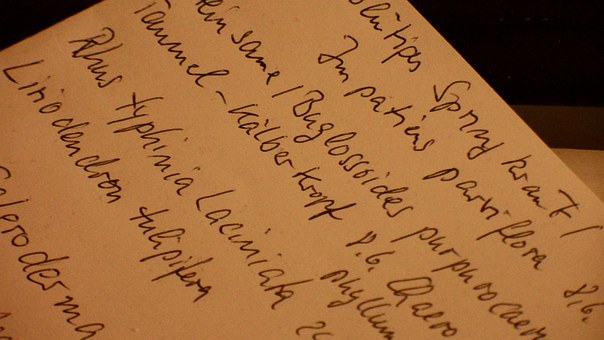 Springkraut /
Impatiens parviflora 8.6.
same / Buglossoides purpurocaer
Taumel-Kälberkropf 8.6. Chaero
phyllum
Rhus typhinia Laciniata
Liriodendron tulipifera
Scleroderma